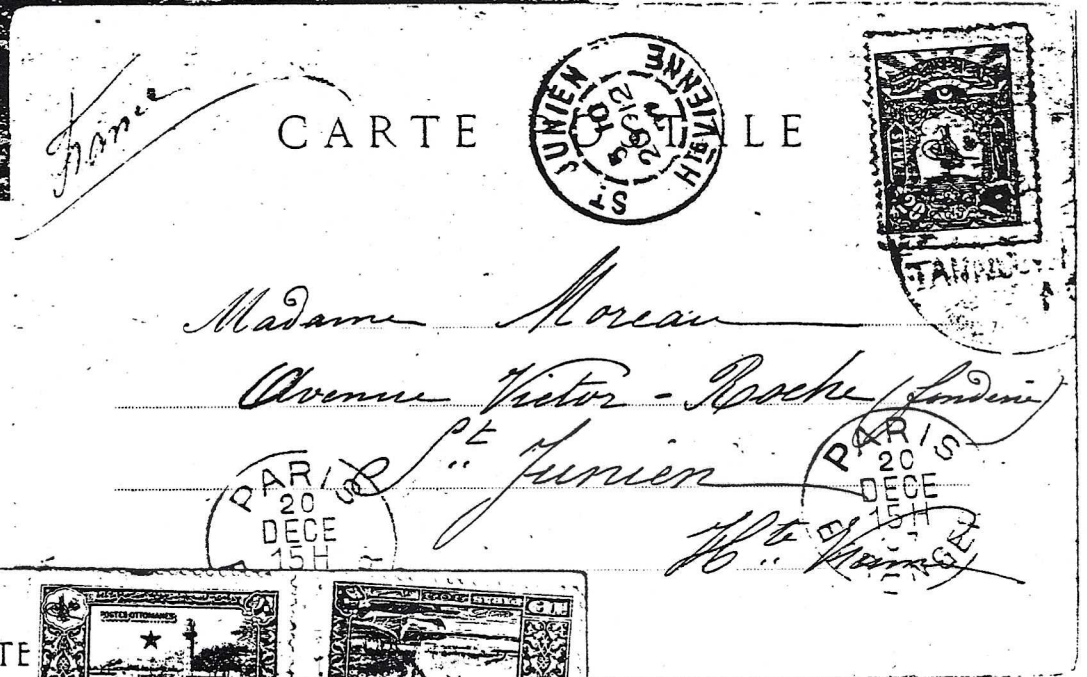 France
CARTE POSTALE
ST JUNIEN
HTE VIENNE
10
PARIS
20
DECE
15H
Madame Moreau
Avenue Victor-Roche (fonderie)
St Junien
Hte Vienne
PARIS
20
DECE
15H
ETRANGER
POSTES OTTOMANES
TE